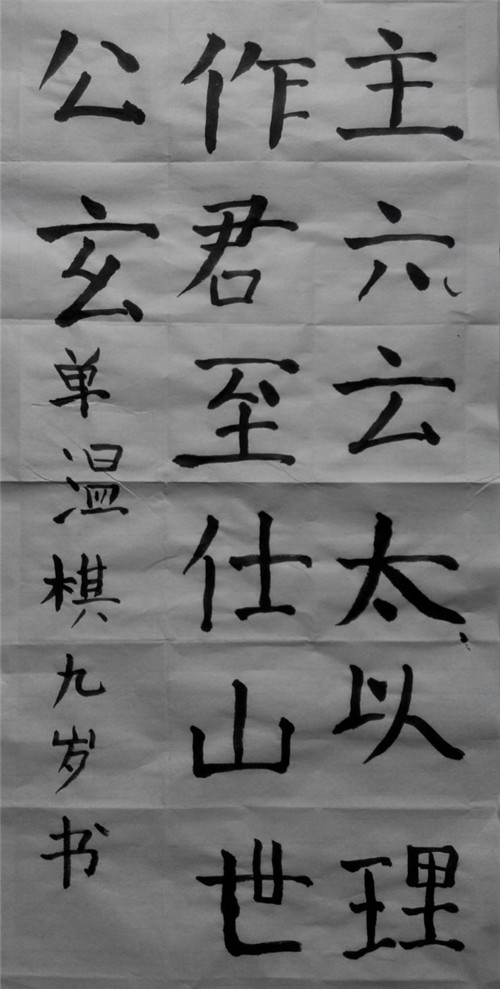 主六云太以理
作君至仕山世
公玄单温棋九岁书